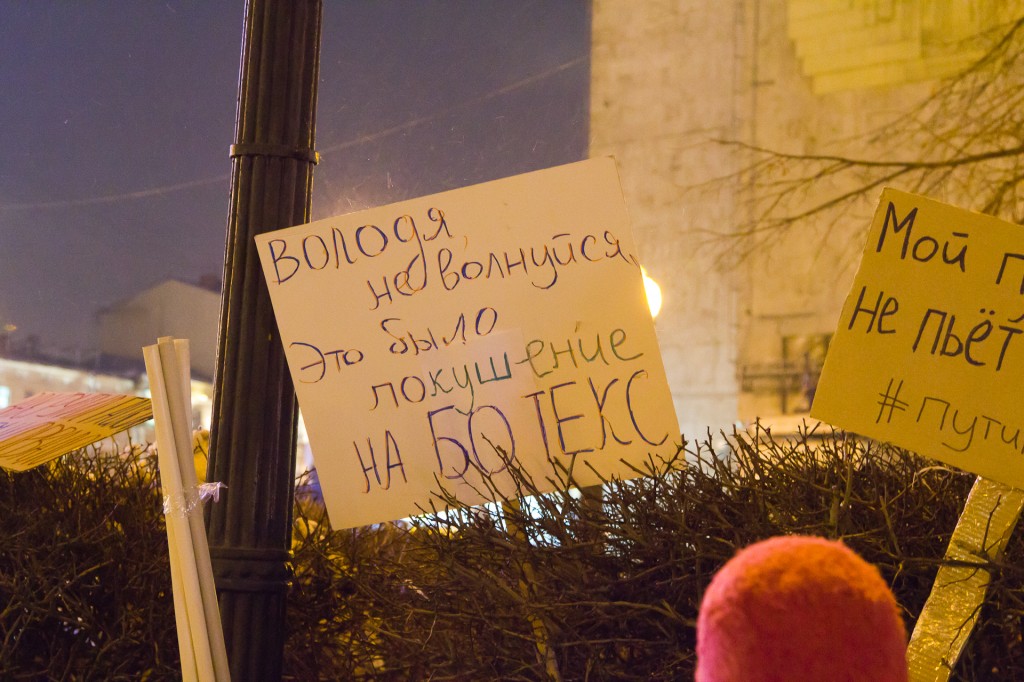 ВОЛОДЯ,
не волнуйся,
Это было
покушение
НА БОТЕКС
Мой
не пьёт
#пути